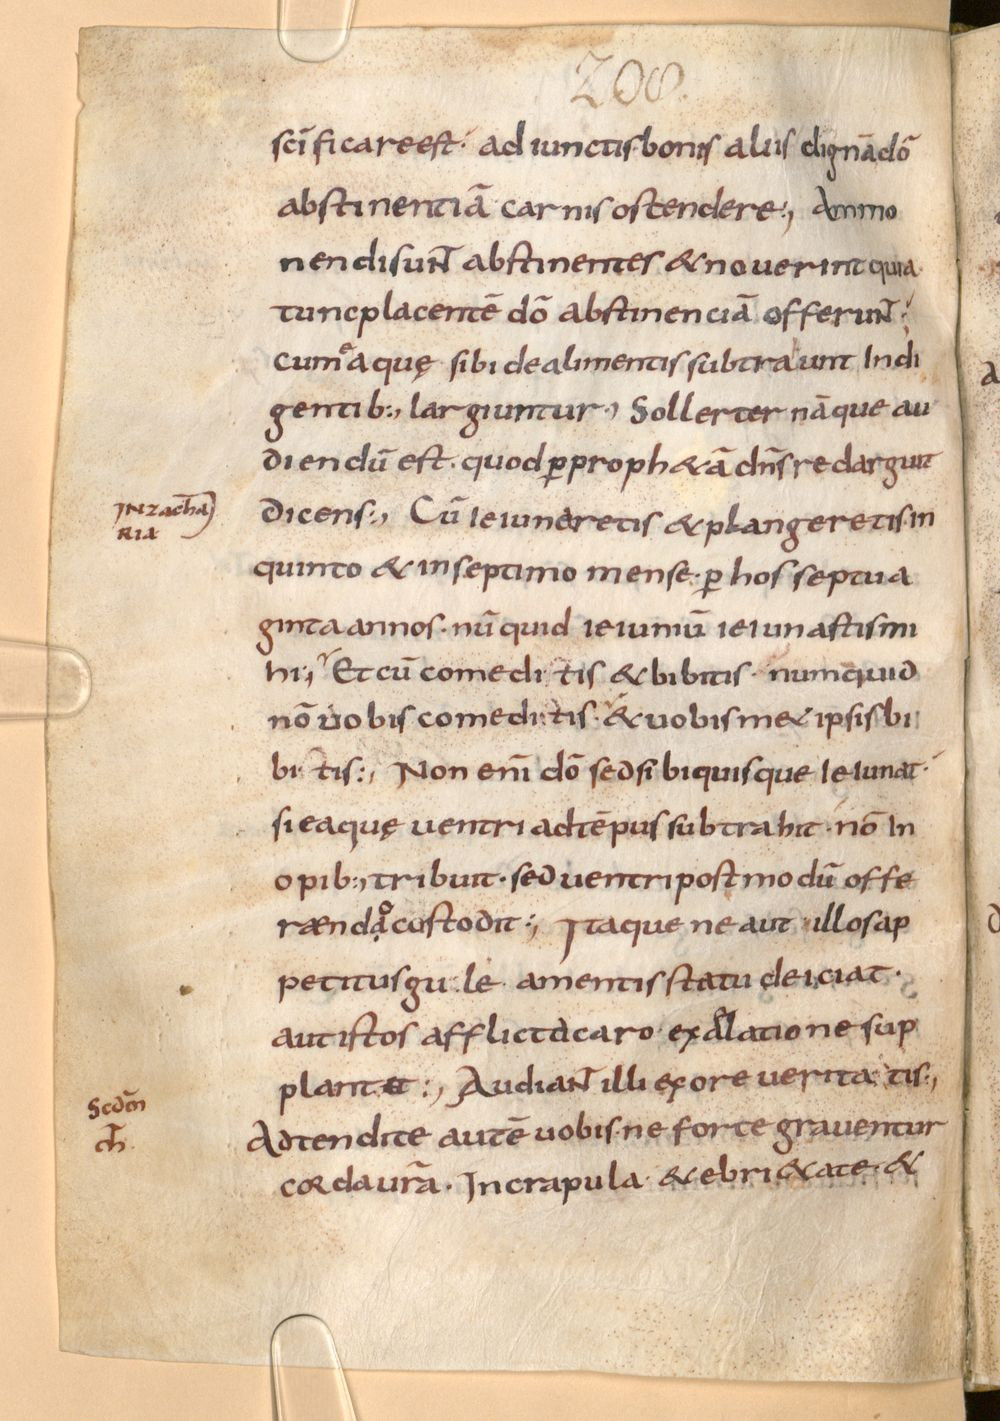 208.
scīficare est· ad iunctis bonis aliis dignā dō
abstinentiā carnis ostendere:, Ammo
nendi suNT abstinentes & nouerint quia
tunc placentē dō abstinenciā offeruNT·
cum ea quę sibi de alimentis subtraunt Indi
gentib:, largiuntur·, Sollerter nāque au
diendū est· quod ꝑ proph&ā dn̄s redarguit
INzach̄a
RIA
dicens:, Cū ieiunaretis & plangeretis· in
quinto & in septimo mense· ꝑ hos septua
ginta annos· nū quid ieiuniū ieiunastis mi
hi:, Et cū comeditis & bibitis· numquid
nō uobis comeditis· & uobis mex ipsis bi
bitis:, Non enī dō sed sibi quisque Ieiunat·
si ea quę uentri ad tēpus subtrahit· nō In
opib:, tribuit· sed uentri postmodū offe
rænda custodit:, Itaque ne aut illos ap
petitus gule amentis statu deiciat·
aut istos afflicta caro ex alatione sup
plantet:, AudiaNT illi ex ore ueritatis:,
Scdm̄
ch̄
Adtendite autē uobis· ne forte grauentur
corda ur̄a· In crapula & ebri&ate· &